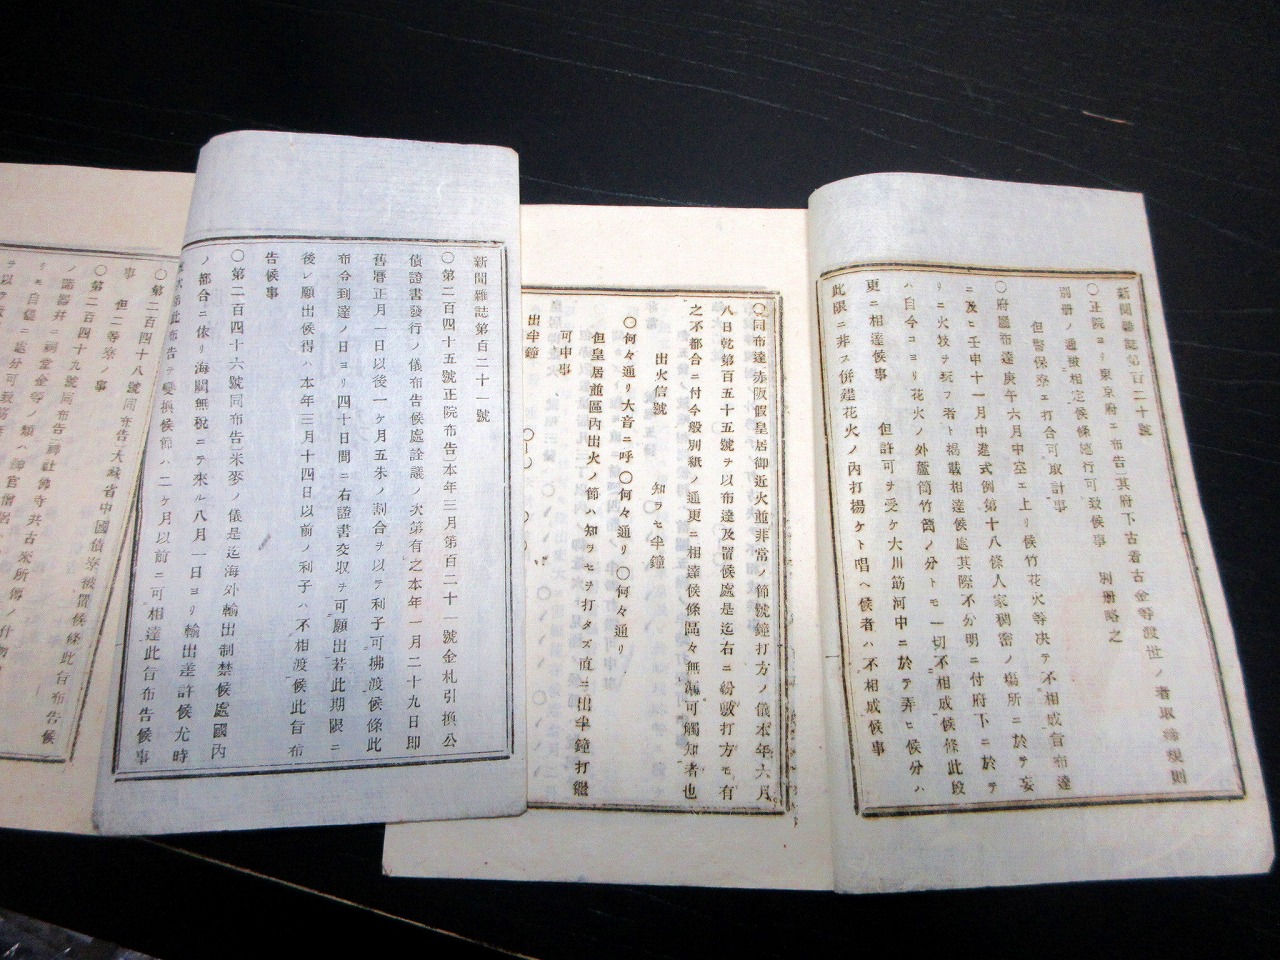 新聞雜誌第百二十號
〇正院ヨリ東京府ニ布告其府下古着古金等渡世ノ者取締規則
別册ノ通被相定候條施行可致候事　別册略之
但警保寮エ打合可取計事
〇府廳布達庚午六月中空エ上リ候竹花火等決テ不相成旨布達
ニ及ヒ壬申十一月中違式例第十八條人家稠密ノ場所ニ於テ妄
リニ火技ヲ玩フ者ト揭載相達候處其際不分明ニ付府下ニ於テ
ハ自今コヨリ花火ノ外蘆筒竹筒ノ分トモ一切不相成候條此段
更ニ相達候事　但許可ヲ受ケ大川筋河中ニ於テ弄ヒ候分ハ
此限ニ非ス併繼花火ノ內打揚ケト唱ヘ候者ハ不相成候事
〇同布達赤阪假皇居御近火並非常ノ節號鐘打方ノ儀本年六月
八日乾第百五十五號ヲ以布達及置候處是迄右ニ紛敷打方モ有
之不都合ニ付今般別紙ノ通更ニ相達候條區々無漏可觸知者也
出火信號　知ラセ半鐘
〇何々通リ大音ニ呼〇何々通リ〇何々通リ
但皇居並區內出火ノ節ハ知ラセヲ打タズ直ニ出半鐘打繼
可申事
出半鐘
新聞雜誌第百二十一號
〇第二百四十五號正院布告本年三月第百二十一號金札引換公
債證書發行ノ儀布告候處詮議ノ次第有之本年一月二十九日即
舊曆正月一日以後一ヶ月五朱ノ割合ヲ以テ利子可拂渡候條此
布令到達ノ日ヨリ四十日間ニ右證書交取ヲ可願出若此期限ニ
後レ願出候得ハ本年三月十四日以前ノ利子ハ不相渡候此旨布
告候事
〇第二百四十六號同布告米麥ノ儀是迄海外輸出制禁候處國內
ノ都合ニ依リ海關無稅ニテ來ル八月一日ヨリ輸出差許候尤時
此布告ヲ變換候節ハ二ヶ月以前ニ可相達此旨布告候事
〇第二百四十八號同布告大藏省中國債寮被置候條此旨布告候
事　但二等寮ノ事
〇第二百四十九號同布告神社佛寺共古來所傳ノ什物
ノ諸器井ニ祠堂金等ノ類ハ神官僧侶